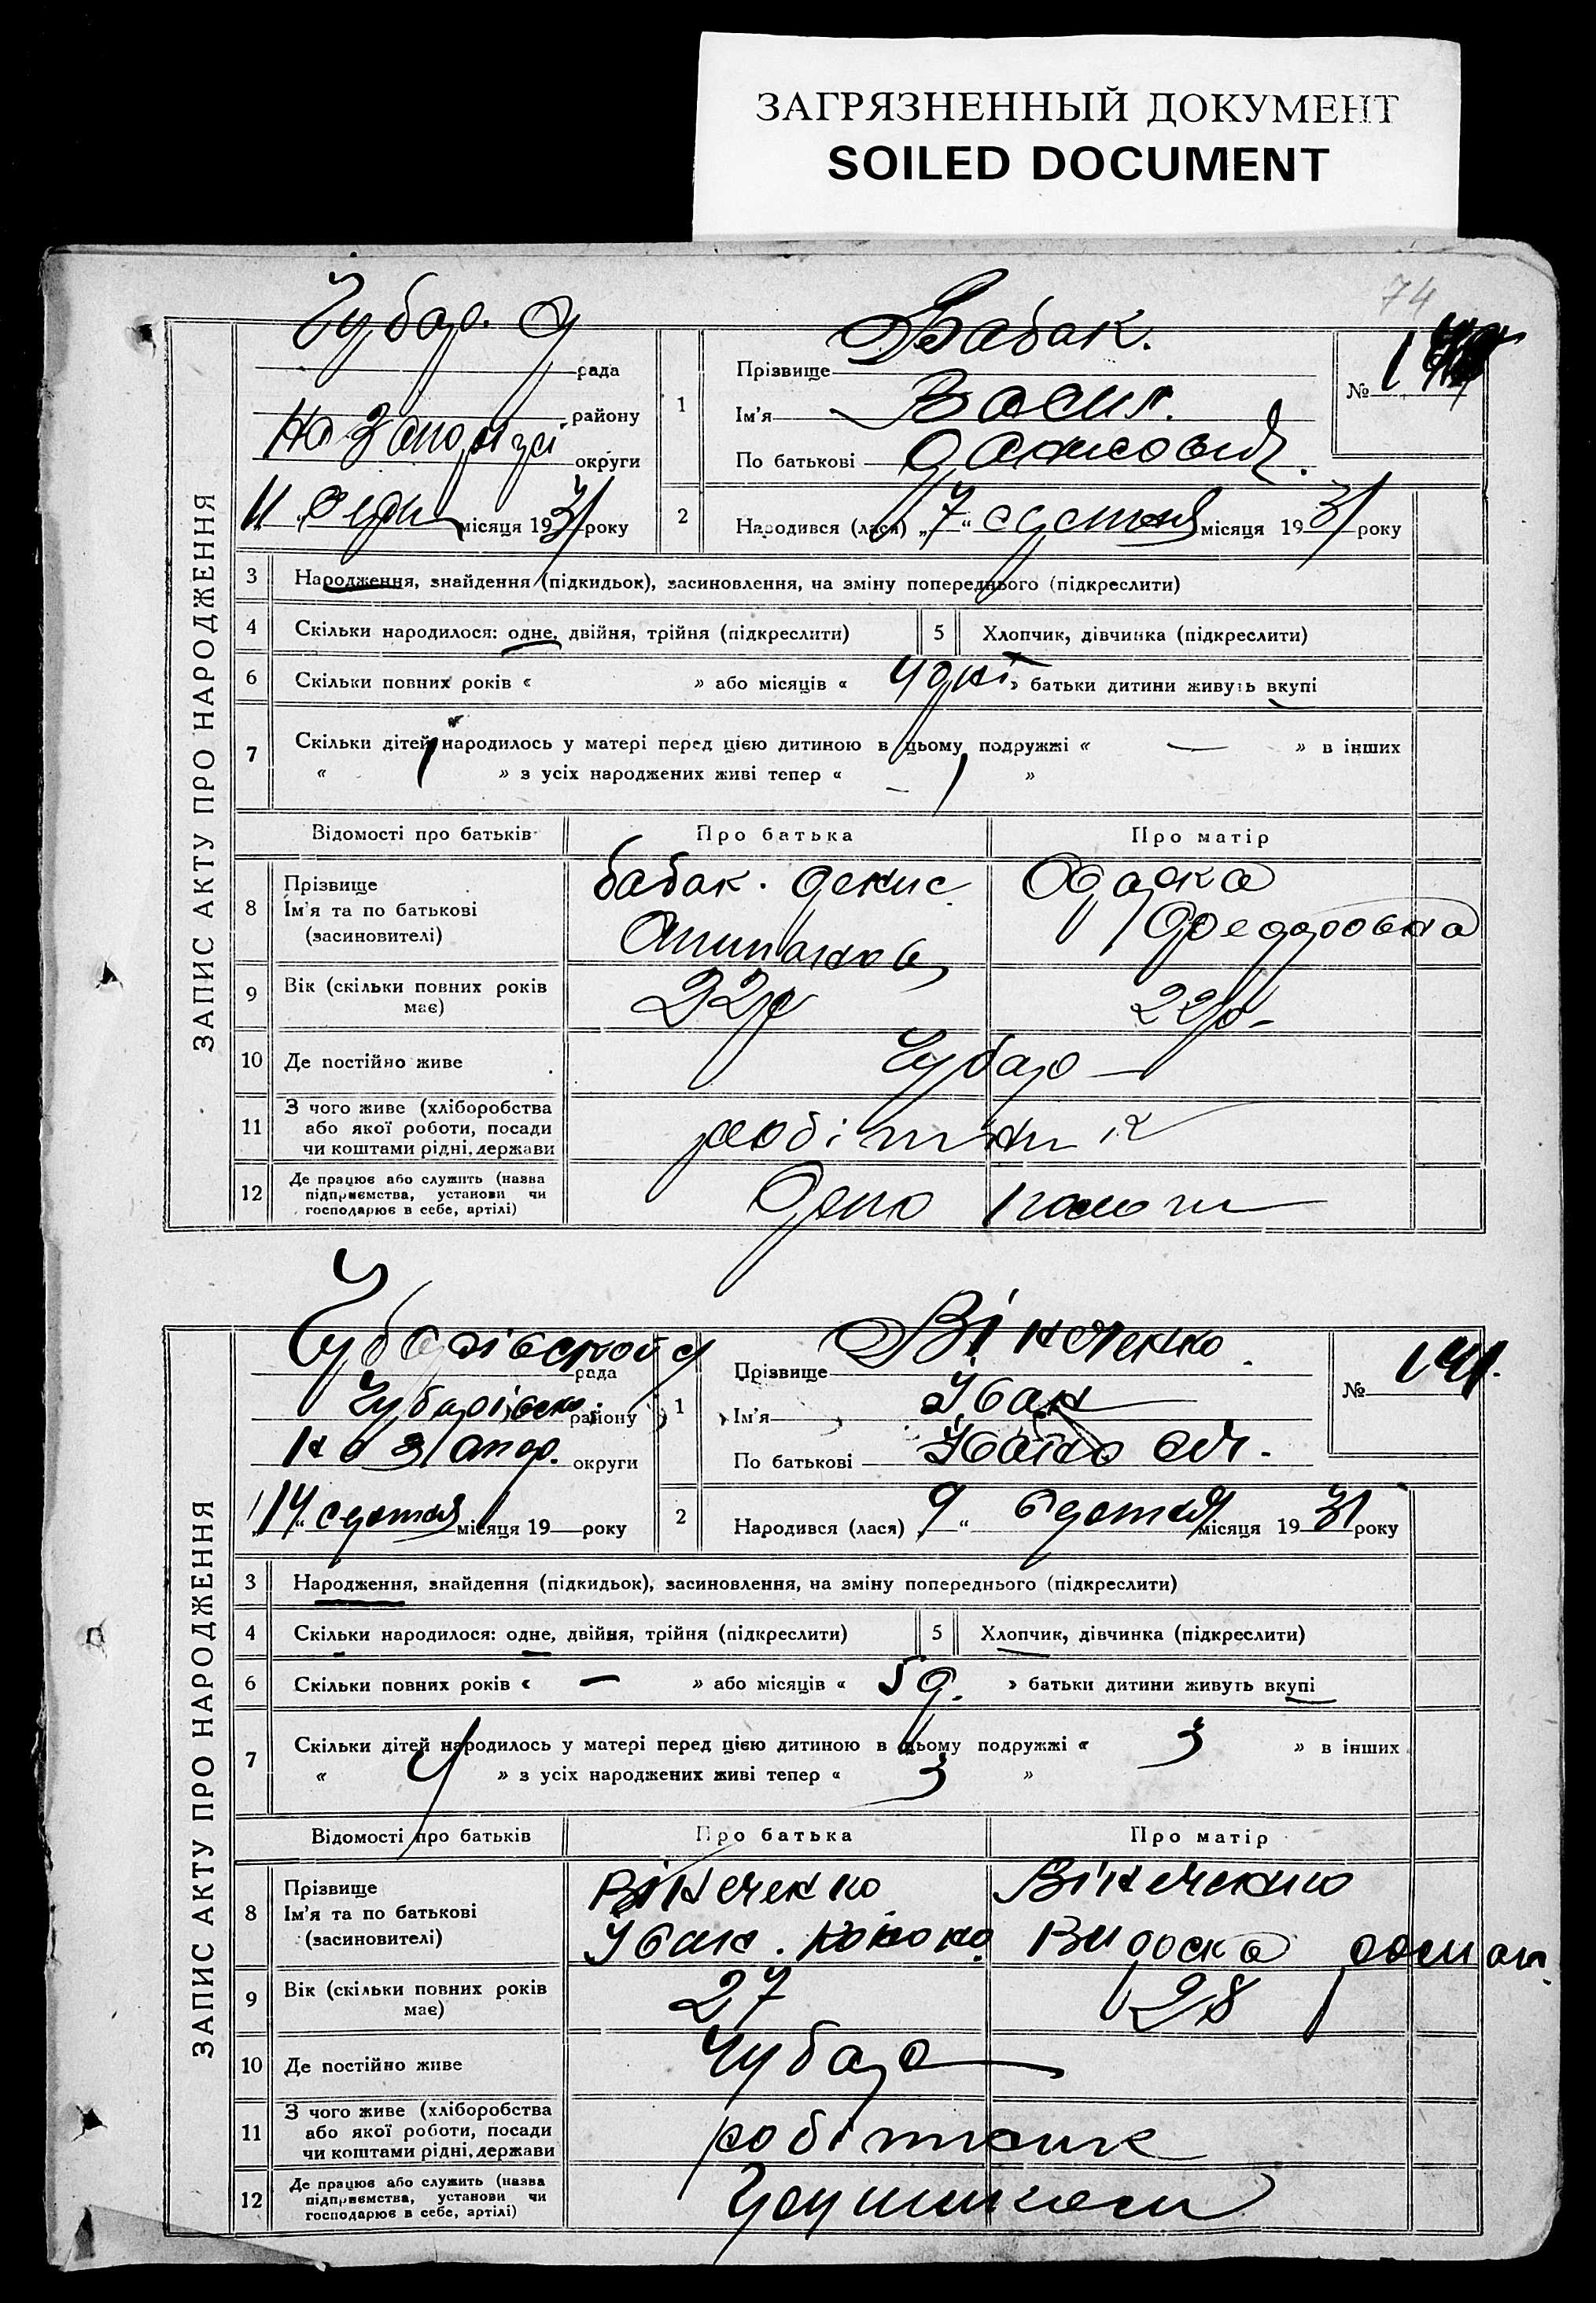 ЗАГРЯЗНЕННЫЙ ДОКУМЕНТ
SOILED DOCUMENT
74
ЗАПИС АКТУ ПРО НАРОДЖЕННЯ
Чубар.
рада
району
округи
11 місяця 1931 року
1
Прізвище Бабак.
Ім'я Васил.
По батькові
№
2
Народився (лася) „7“ серпня місяця 1931 року
3 Народження, знайдення (підкидьок), засиновлення, на зміну попереднього (підкреслити)
4 Скільки народилося: одне, двійня, трійня (підкреслити)
5 Хлопчик, дівчинка (підкреслити)
6 Скільки повних років « » або місяців « » батьки дитини живуть вкупі
7 Скільки дітей народилось у матері перед цією дитиною в цьому подружжі « — » в інших
« 1 » з усіх народжених живі тепер « 1 »
Відомості про батьків Про батька Про матір
8 Прізвище
Ім'я та по батькові
(засновителі)
бабак. Денис
Одарка
Федоровна
9 Вік (скільки повних років
має)
22р 22р
10 Де постійно живе Чубар
11 З чого живе (хліборобства
або якої роботи, посади
чи коштами рідні, держави
робітник
12 Де працює або служить (назва
підприємства, установи чи
господарює в себе, артілі)
Депо
ЗАПИС АКТУ ПРО НАРОДЖЕННЯ
Чубарівской
рада
Чубарівск. району
округи
„14“ серпня місяця 19 року
1
Прізвище Вінеченко
Ім'я Іван
По батькові Іванович.
№ 141.
2
Народився (лася) „9“ серпня місяця 1931 року
3 Народження, знайдення (підкидьок), засиновлення, на зміну попереднього (підкреслити)
4 Скільки народилося: одне, двійня, трійня (підкреслити)
5 Хлопчик, дівчинка (підкреслити)
6 Скільки повних років « — » або місяців « » батьки дитини живуть вкупі
7 Скільки дітей народилось у матері перед цією дитиною в цьому подружжі « 3 » в інших
« » з усіх народжених живі тепер « 3 »
Відомості про батьків Про батька Про матір
8 Прізвище
Ім'я та по батькові
(засновителі)
Вінеченко
Іван.
Вінеченко
9 Вік (скільки повних років
має)
27 28
10 Де постійно живе Чубар
11 З чого живе (хліборобства
або якої роботи, посади
чи коштами рідні, держави
робітник
12 Де працює або служить (назва
підприємства, установи чи
господарює в себе, артілі)